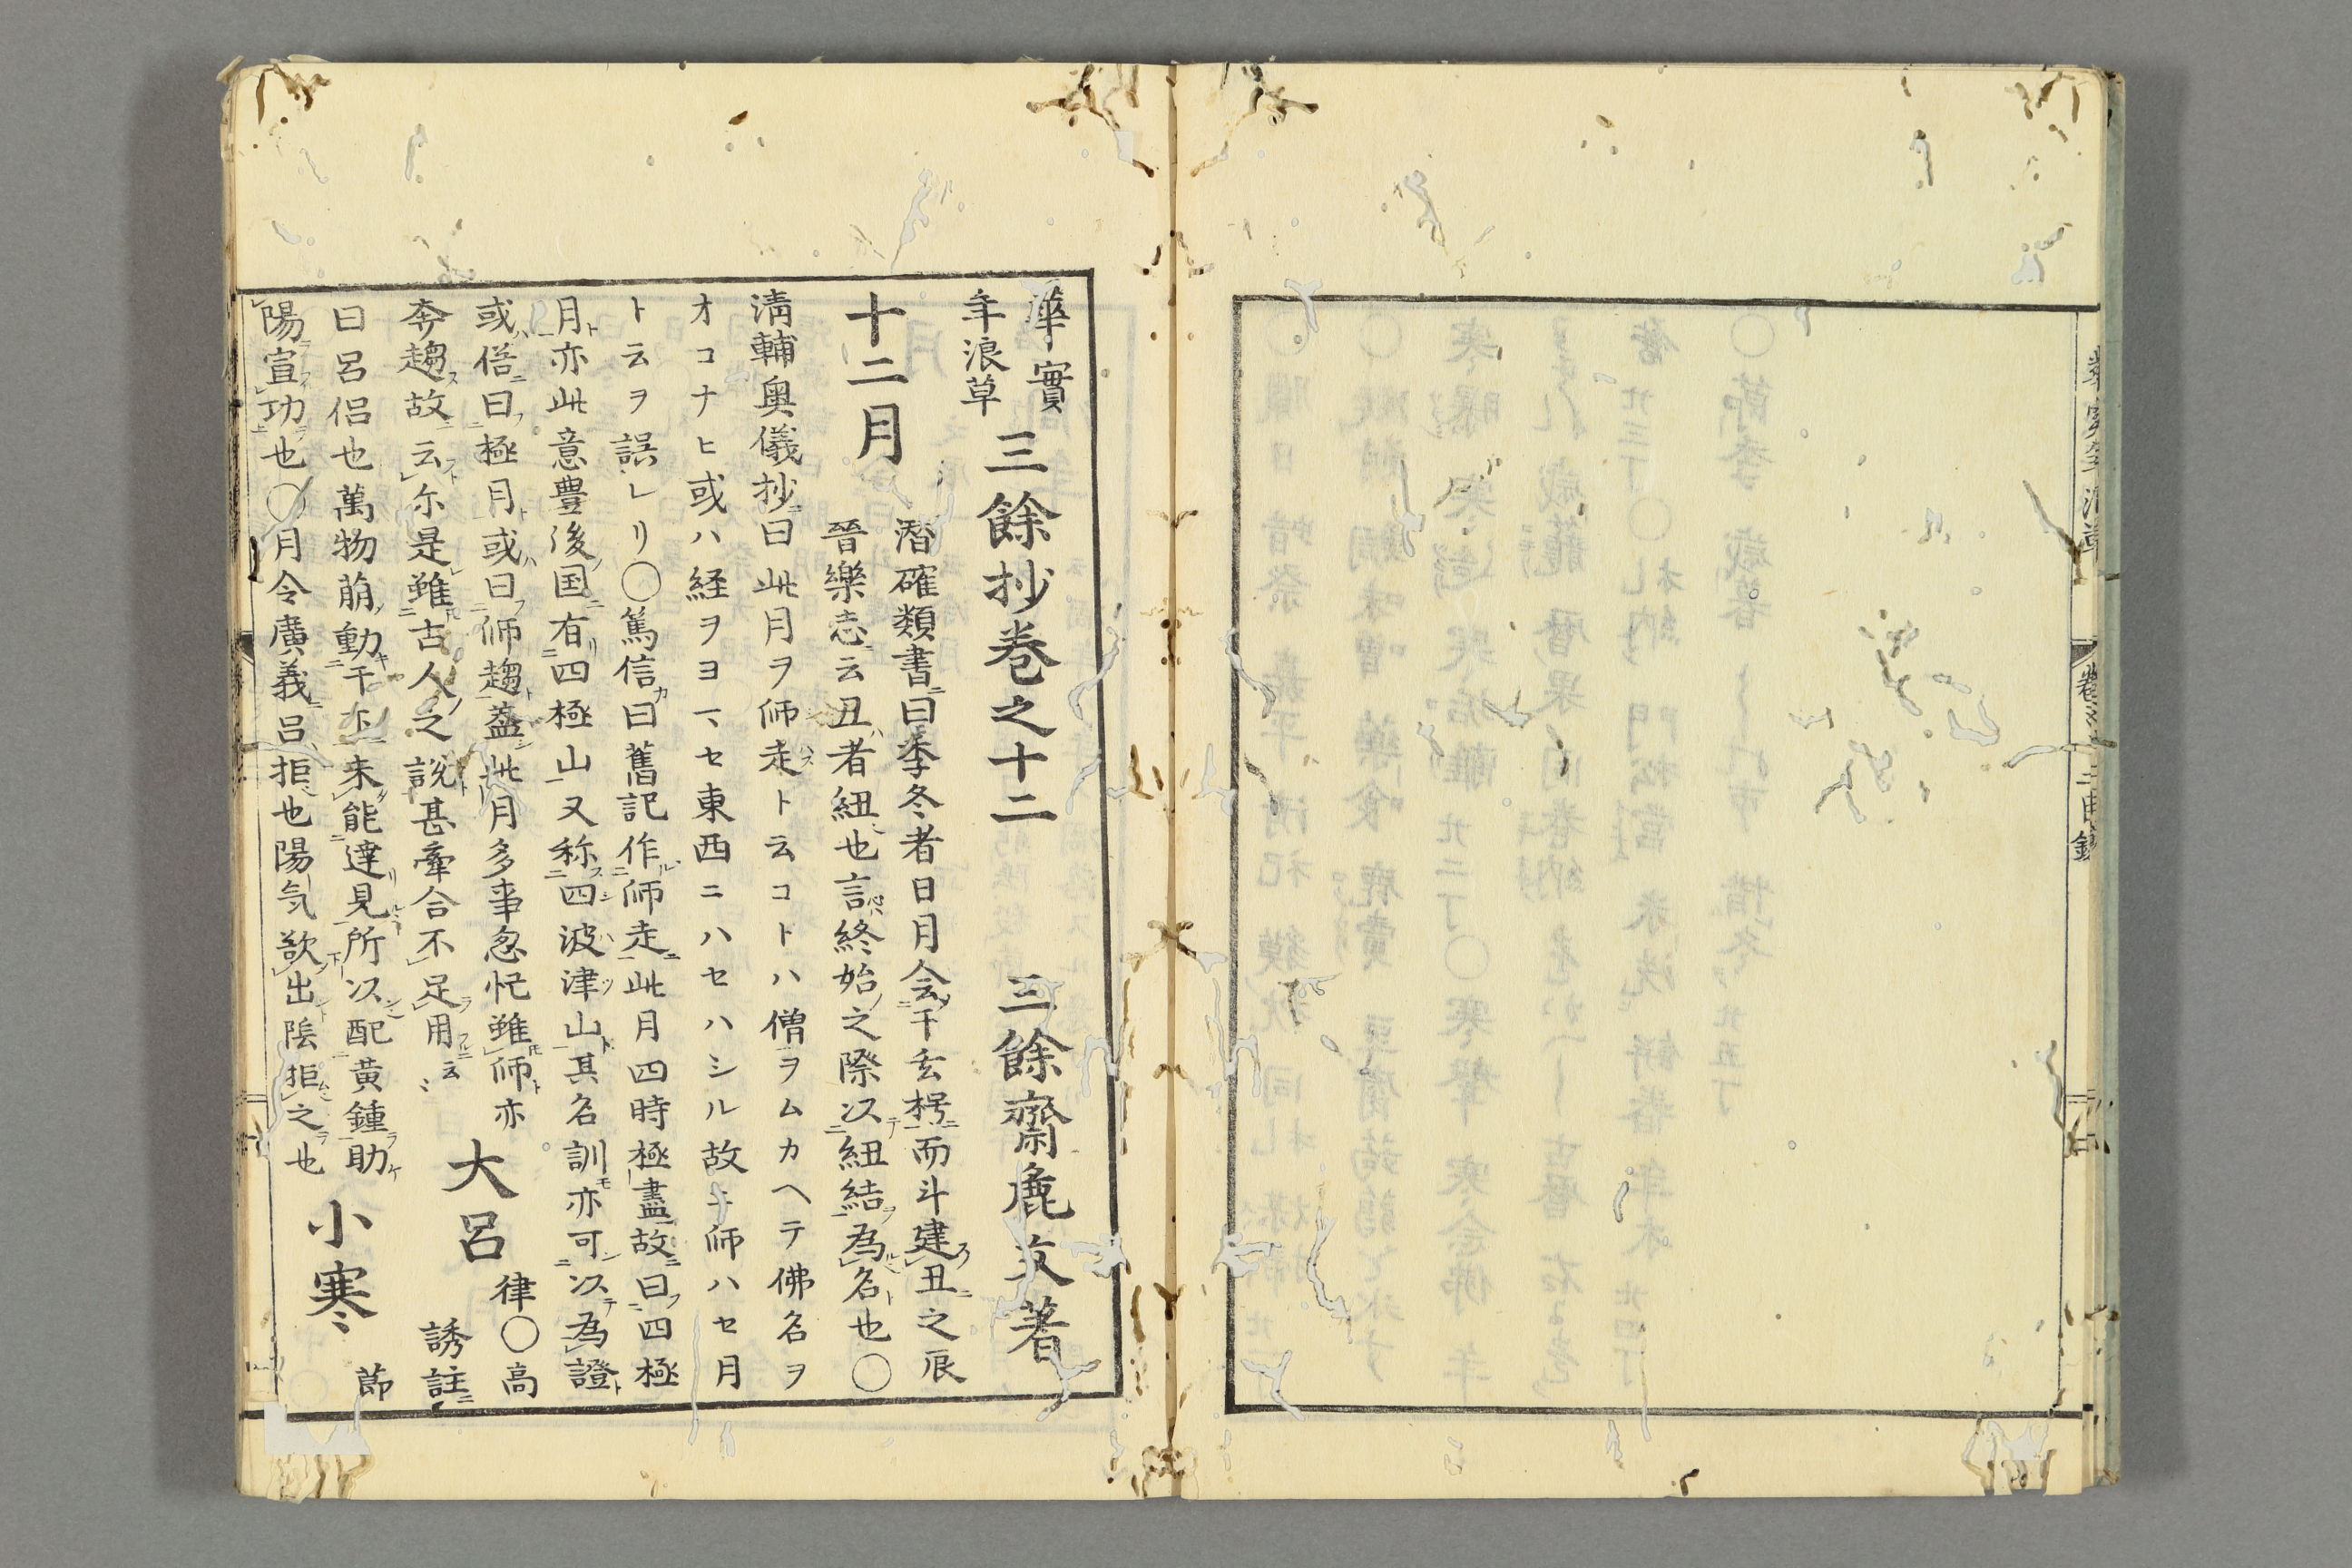 華實
年浪草
三餘抄巻之十二
三餘齋麁文著
十二月
潛確類書曰季冬者日月会于玄枵而斗建丑之辰
晉樂志云丑者紐也言終始之際以紐結為名也〇
淸輔奥儀抄曰此月ヲ師走ト云コトハ僧ヲムカヘテ佛名ヲ
オコナヒ或ハ経ヲヨマセ東西ニハセハシル故ニ師ハセ月
ト云ヲ誤レリ〇篤信曰舊記作師走此月四時極盡故曰四極
月亦此意豊後国有四極山又称四波津山其名訓亦可以為證
或俗曰極月或曰師趨蓋此月多事怱忙雖師亦
奔趨故云尓是雖古人之説甚牽合不足用云〻
大呂
律〇高
誘註
曰呂侶也萬物萠動于下未能達見所以配黄鍾助
陽宣功也〇月令廣義呂拒也陽気欲出陰拒之也
小寒
節